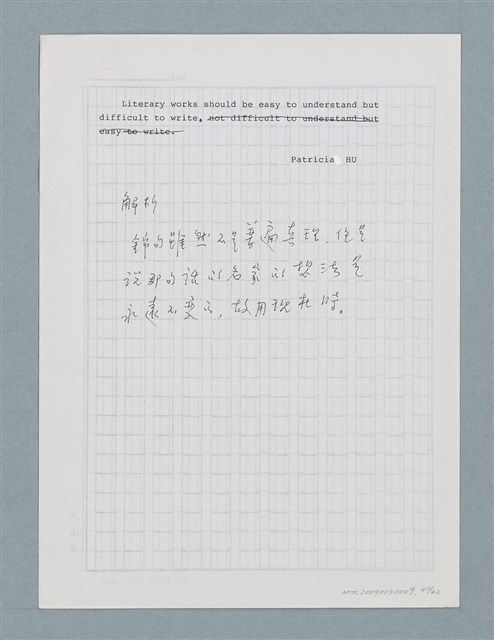 Literary works should be easy to understand but
difficult to write. not difficult to understand but
easy to write.
Patricia HU
解析
錦句雖然不是普遍真理,但是
說那句話的名家的想法是
永遠不變的,故用現在時。